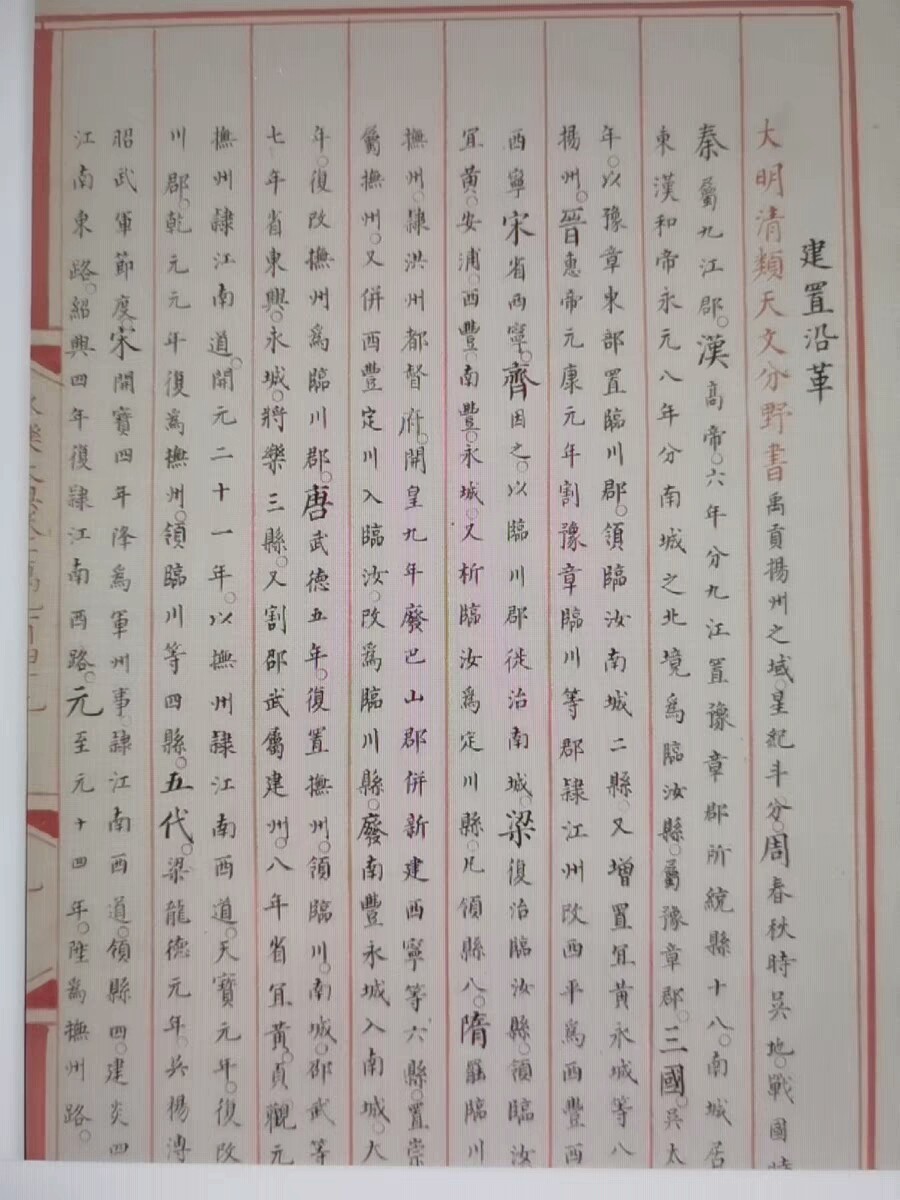 建置沿革
大明清類天文分野書禹貢揚州之域星紀斗分周春秋時吳地戰國時
秦屬九江郡漢高帝六年分九江置豫章郡所統縣十八南城居
東漢和帝永元八年分南城之北境爲臨汝縣屬豫章郡三國吳太
年以豫章東部置臨川郡領臨汝南城二縣又增置宜黃永城等八
揚州晉惠帝元康元年割豫章臨川等郡隸江州改西平爲西豐西
西寧宋省西寧齊因之以臨川郡徙治南城梁復治臨汝縣領臨汝
宜黃安浦西豐南豐永城又析臨汝爲定川縣凡領縣八隋罷臨川
撫州隸洪州都督府開皇九年廢巴山郡併新建西寧等六縣置崇
屬撫州又併西豐定川入臨汝改爲臨川縣廢南豐永城入南城大
年復改撫州爲臨川郡唐武德五年復置撫州領臨川南城邵武等
七年省東興永城將樂三縣又割邵武屬建州八年省宜黃貞觀元
撫州隸江南道開元二十一年以撫州隸江南西道天寶元年復改
川郡乾元元年復爲撫州領臨川等四縣五代梁龍德元年吳楊溥
昭武軍節度宋開寶四年降爲軍州事隸江南西道領縣四建炎四
江南東路紹興四年復隸江南西路元至元十四年陞爲撫州路